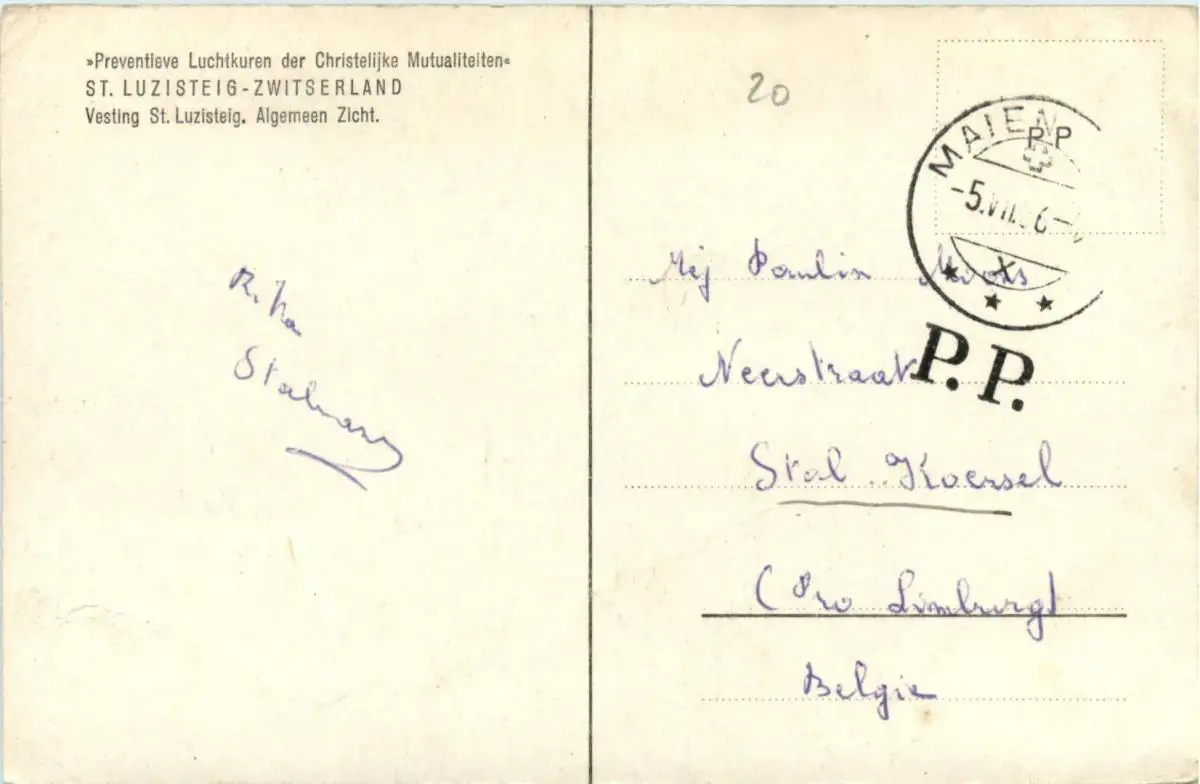 »Preventieve Luchtkuren der Christelijke Mutualiteiten«
ST. LUZISTEIG-ZWITSERLAND
Vesting St. Luzisteig. Algemeen Zicht.
20
MAIEN
PP
-5.VII. 6-
X
P.P.
Mej Paulin
Neerstraat
Stal. Koersel
(Pro Limburg)
Belgie